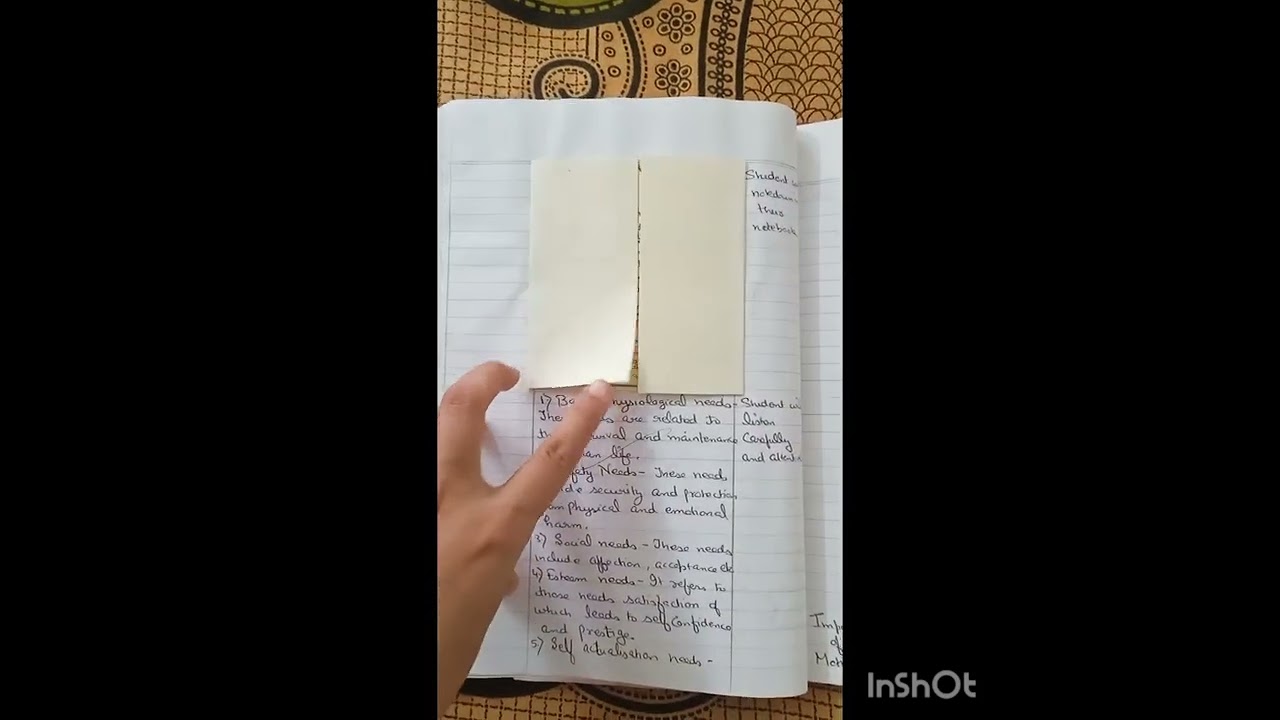 Student
notedown
their
notebook
1) Ba physiological needs-
The are related to
and maintenance
life.
Needs- These needs
security and protection
physical and emotional
harm.
3) Social needs - These needs
include affection, acceptance etc
4) Esteem needs - It refers to
those needs satisfaction of
which leads to self confidence
and prestige.
5) Self actualisation needs -
Student
listen
Carefully
and
Imp
of
Mot
InShOt